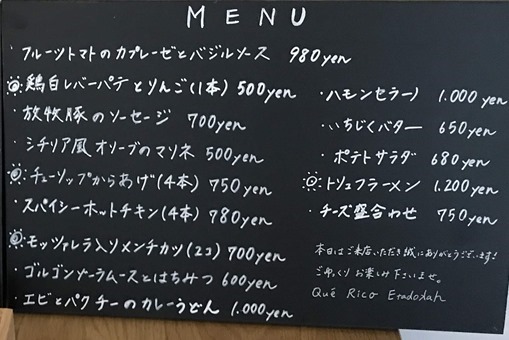 MENU
・フルーツトマトのカプレーゼとバジルソース 980yen
・鶏白レバーパテとりんご(1本) 500yen
・放牧豚のソーセージ 700yen
・シチリア風オリーブのマリネ 500yen
・チューリップからあげ(4本) 750yen
・スパイシーホットチキン(4本) 780yen
・モッツァレラ入りメンチカツ(2コ) 700yen
・ゴルゴンゾーラムースとはちみつ 600yen
・エビとパクチーのカレーうどん 1.000yen
・ハモンセラーノ 1.000yen
・いちじくバター 650yen
・ポテトサラダ 680yen
・トリュフラーメン 1.200yen
・チーズ盛合わせ 750yen
本日はご来店いただき誠にありがとうございます!
ごゆっくりお楽しみ下さいませ。
Qué Rico